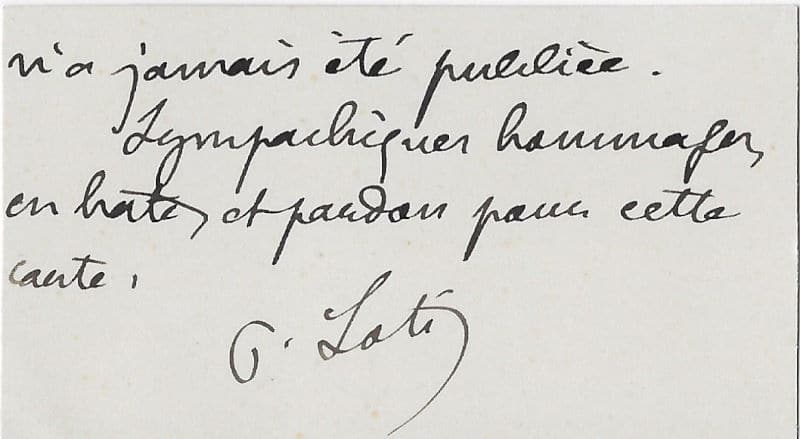 n'a jamais été publiée.
Sympathiques hommages,
en hate, et pardon pour cette
carte.
P. Loti